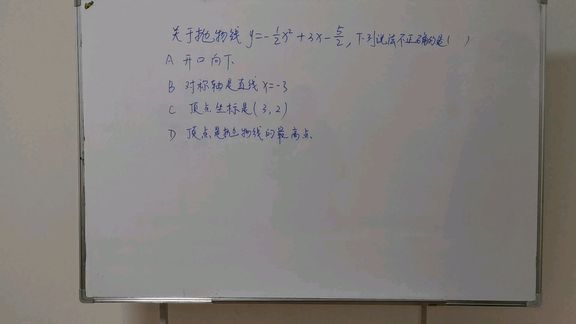 关于抛物线 y=-\frac{1}{2}x²+3x-\frac{5}{2}, 下列说法不正确的是( )
A 开口向下
B 对称轴是直线 x=-3
C 顶点坐标是(3,2)
D 顶点是抛物线的最高点